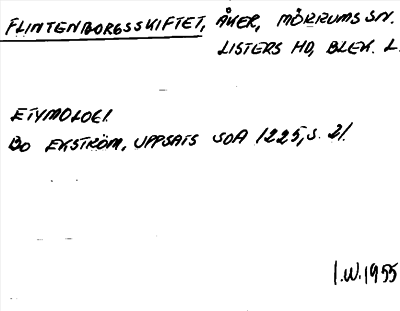 FLINTENBORGSSKIFTET, ÅKER, MÖRRUMS SN.
LISTERS HD, BLEK. L.
ETYMOLOGI.
BO EKSTRÖM, UPPSATS SOA 1225, S. 21.
I.W. 1955